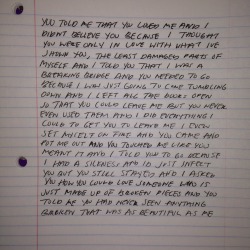 YOU TOLD ME THAT YOU LOVED ME AND I
DIDN'T BELIEVE YOU BECAUSE I THOUGHT
YOU WERE ONLY IN LOVE WITH WHAT I'VE
SHOWN YOU, THE LEAST DAMAGED PARTS OF
MYSELF AND I TOLD YOU THAT I WAS A
BREAKING BRIDGE AND YOU NEEDED TO GO
BECAUSE I WAS JUST GOING TO COME TUMBLING
DOWN AND I LEFT ALL THE DOORS OPEN
SO THAT YOU COULD LEAVE ME BUT YOU NEVER
EVEN USED THEM AND I DID EVERYTHING I
COULD TO GET YOU TO LEAVE ME I EVEN
SET MYSELF ON FIRE AND YOU CAME AND
PUT ME OUT AND YOU TOUCHED ME LIKE YOU
MEANT IT AND I TOLD YOU TO GO BECAUSE
I HAD A SILENESS AND ID JUST INFECT
YOU BUT YOU STILL STAYED AND I ASKED
YOU HOW YOU COULD LOVE SOMEONE WHO IS
JUST MADE UP OF BROKEN PIECES AND YOU
TOLD ME YOU HAD NEVER SEEN ANYTHING
BROKEN THAT WAS AS BEAUTIFUL AS ME